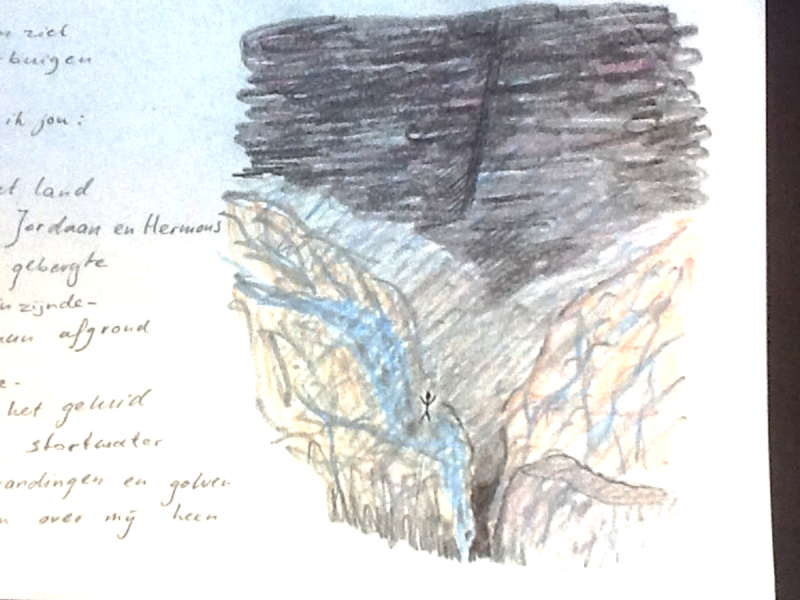 ziel
buigen
ik jou:
land
Jordaan en Hermons
gebergte
zijnde-
afgrond
het geluid
stortwater
en golven
over mij heen